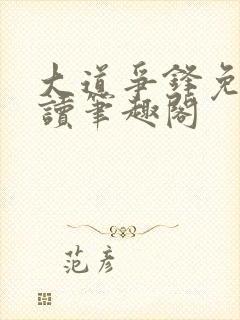 大道爭鋒免
讀筆趣閣
范彥